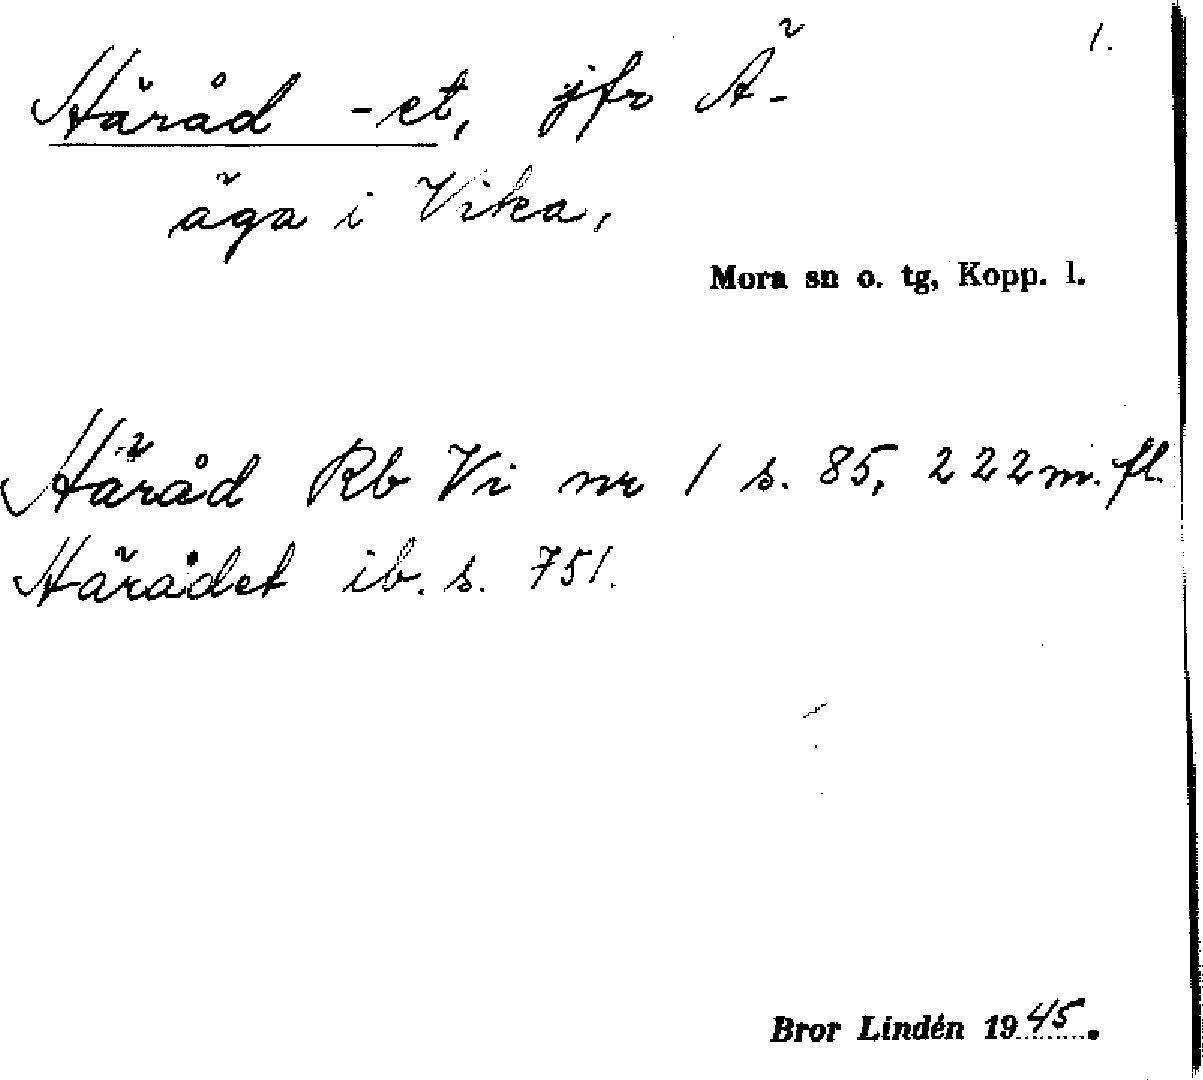 1.
Häråd -et, jfr Ä-
äga i Vika,
Mora sn o. tg, Kopp. l.
Häråd Rb Vi nr 1 s. 85, 222 m. fl.
Härådet ib. s. 751.
Bror Lindén 1945.